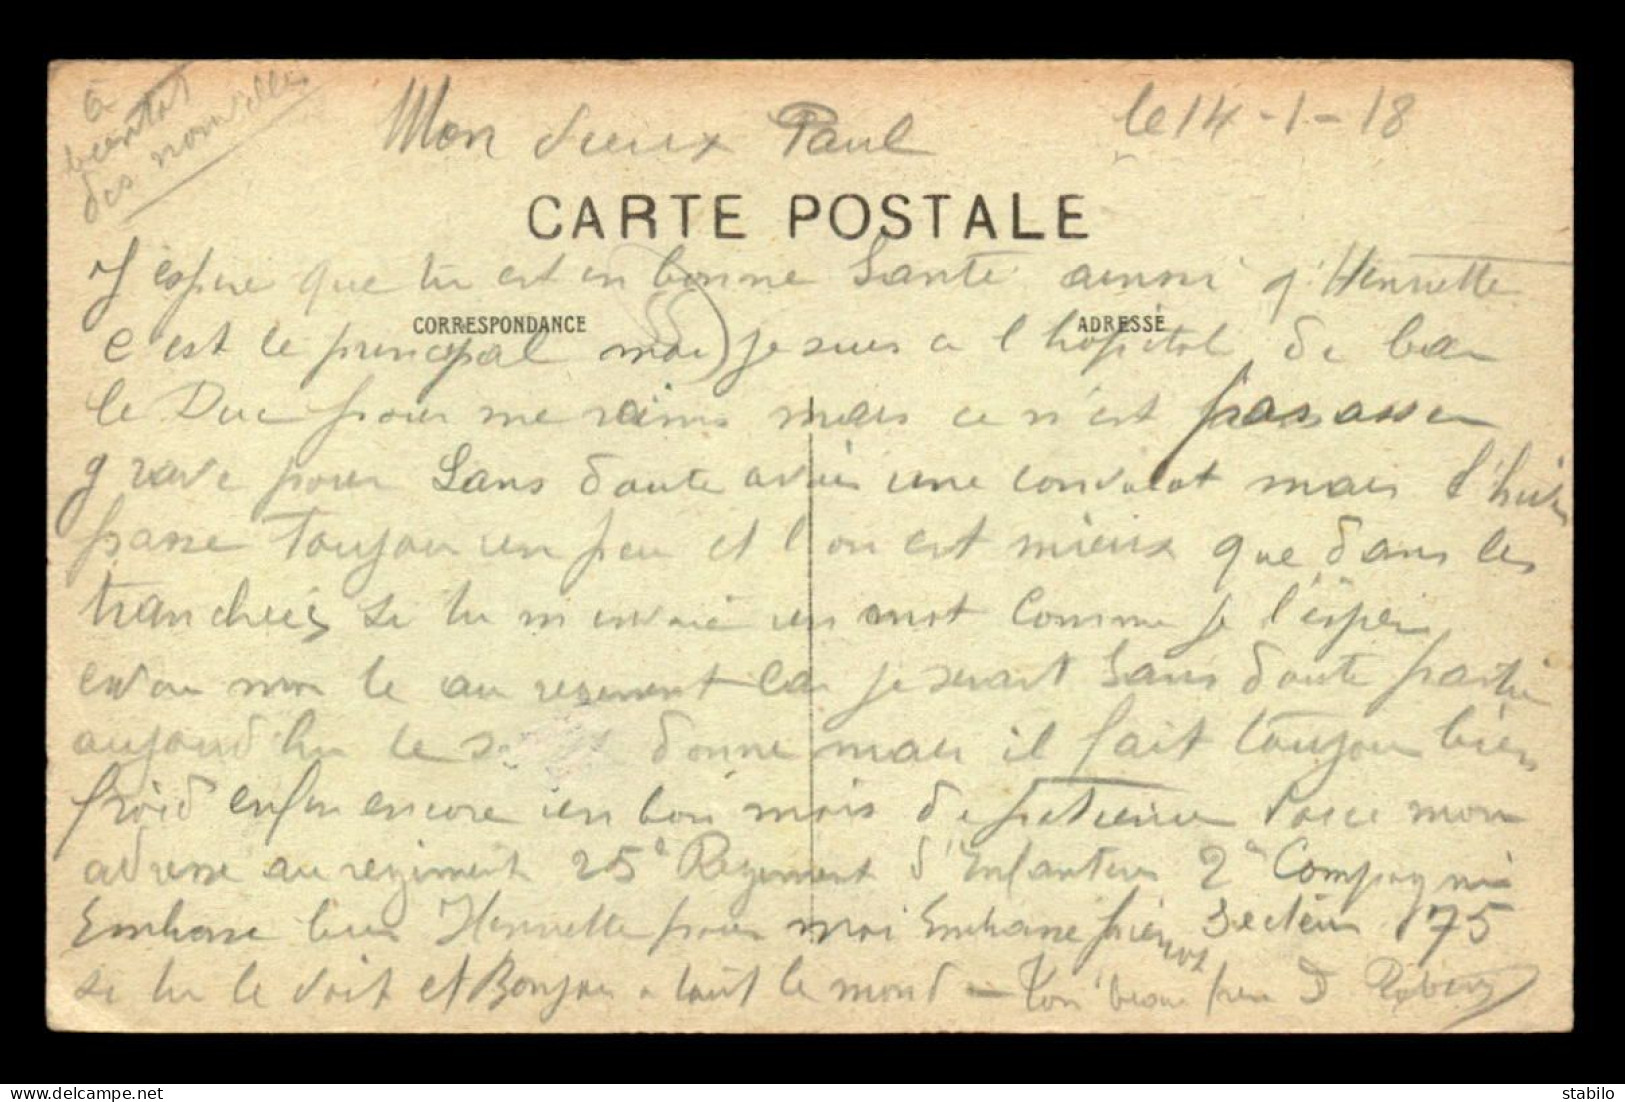 à
bientot
des nouvelles
Mon vieux Paul
le 14-1-18
CARTE POSTALE
J'espere que tu est en bonne Santé ainsi q'Henriette
CORRESPONDANCE
ADRESSE
c'est le principal moi je suis a l'hopital de bar
le Duc pour me mais ce n'est pas assez
grave pour Sans doute avoir une convalot mais l'hiver
passe toujour un peu et l'on est mieux que dans les
tranchées si tu m'envoie un mot comme je l'espere
envoi moi le au regiment car je serait Sans doute partie
aujourd'hui le donne mais il fait toujour bien
froid enfin encore un bon mois de patience Voici mon
adresse au regiment 25e Regiment d'Infanterie 2e Compagnie
Embrasse bien Henriette pour moi Embrasse pierrot Secteur 175
si tu le voit et Bonjour a tout le monde - Ton beau frere D Robin
stabilo